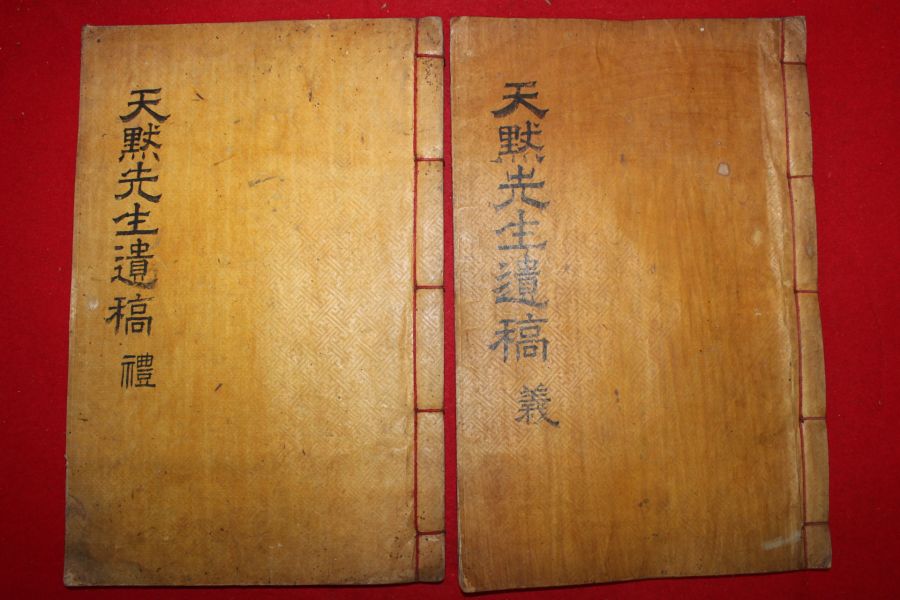 天黙先生遺稿 禮
天黙先生遺稿 義